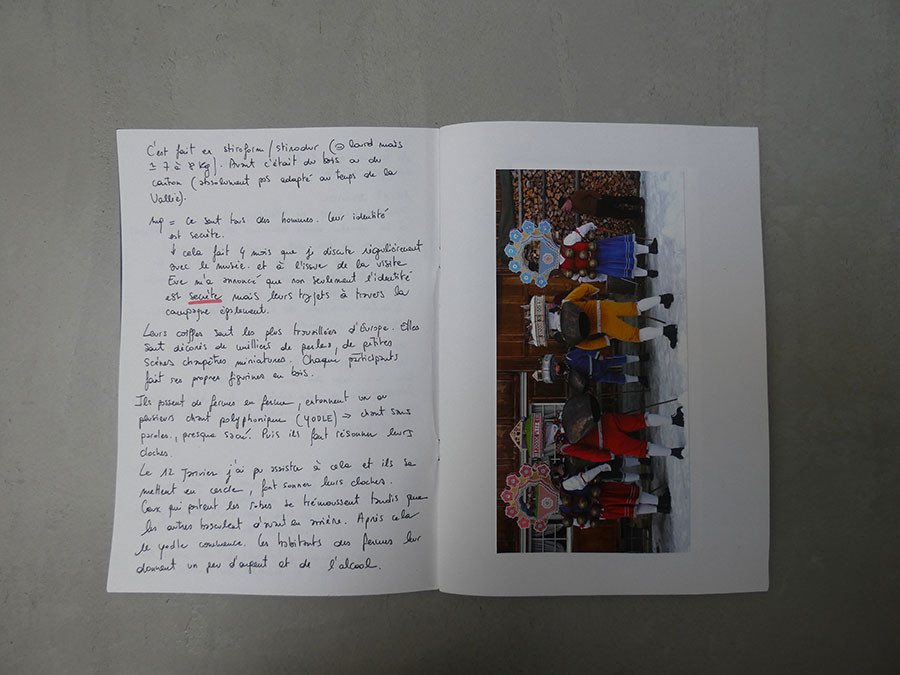 C'est fait en stiroform/stirodur (= lourd mais
≃ 7 à 8 kg). Avant c'était du bois ou du
carton (absolument pas adapté au temps de la
Vallée).
= ce sont tous des hommes. Leur identité
est secrète.
↓ cela fait 4 mois que je discute régulièrement
avec le musée. et à l'issue de la visite
Eve m'a annoncé que non seulement l'identité
est secrète mais leurs trajets à travers la
campagne également.
Leurs coiffes sont les plus travaillées d'Europe. Elles
sont décorés de milliers de perles, de petites
scènes champêtres miniatures. Chaque participants
fait ses propres figurines en bois.
Ils passent de fermes en ferme, entonnent un ou
plusieurs chant polyphonique (YODLE) ⇒ chant sans
paroles, presque sacré. Puis ils font résonner leurs
cloches.
Le 12 Janvier j'ai pu assister à cela et ils se
mettent en cercle, font sonner leurs cloches.
Ceux qui portent les robes se trémoussent tandis que
les autres basculent d'avant en arrière. Après cela
le yodle commence. Les habitants des fermes leur
donnent un peu d'argent et de l'alcool.